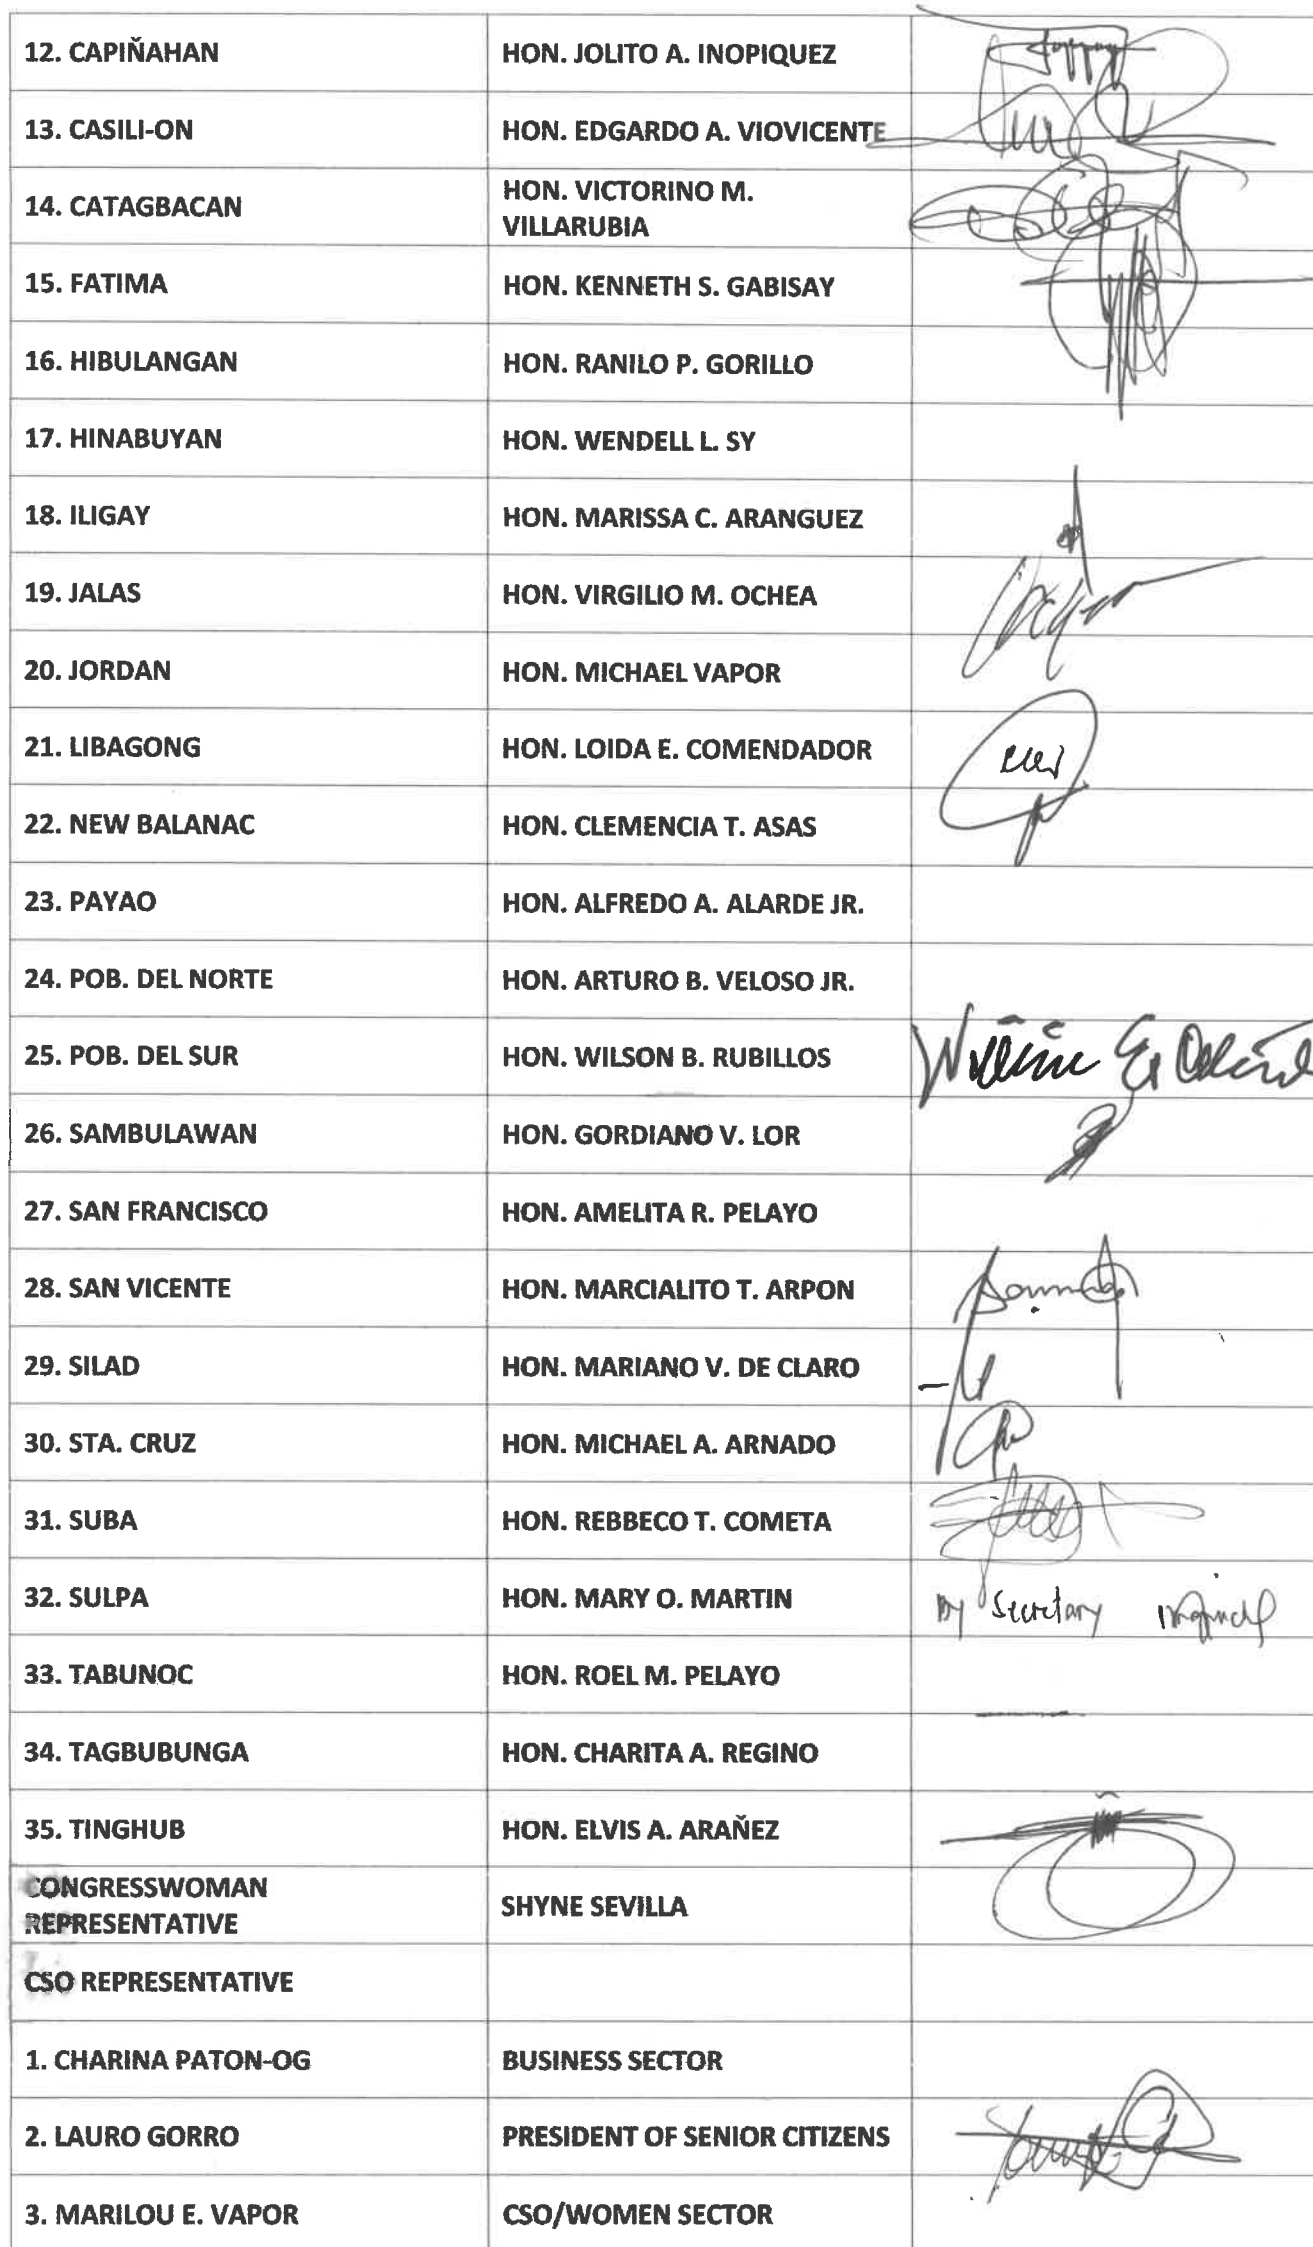 12. CAPIÑAHAN HON. JOLITO A. INOPIQUEZ
13. CASILI-ON HON. EDGARDO A. VIOVICENTE
14. CATAGBACAN HON. VICTORINO M.
VILLARUBIA
15. FATIMA HON. KENNETH S. GABISAY
16. HIBULANGAN HON. RANILO P. GORILLO
17. HINABUYAN HON. WENDELL L. SY
18. ILIGAY HON. MARISSA C. ARANGUEZ
19. JALAS HON. VIRGILIO M. OCHEA
20. JORDAN HON. MICHAEL VAPOR
21. LIBAGONG HON. LOIDA E. COMENDADOR
22. NEW BALANAC HON. CLEMENCIA T. ASAS
23. PAYAO HON. ALFREDO A. ALARDE JR.
24. POB. DEL NORTE HON. ARTURO B. VELOSO JR.
25. POB. DEL SUR HON. WILSON B. RUBILLOS
26. SAMBULAWAN HON. GORDIANO V. LOR
27. SAN FRANCISCO HON. AMELITA R. PELAYO
28. SAN VICENTE HON. MARCIALITO T. ARPON
29. SILAD HON. MARIANO V. DE CLARO
30. STA. CRUZ HON. MICHAEL A. ARNADO
31. SUBA HON. REBBECO T. COMETA
32. SULPA HON. MARY O. MARTIN By Secretary
33. TABUNOC HON. ROEL M. PELAYO
34. TAGBUBUNGA HON. CHARITA A. REGINO
35. TINGHUB HON. ELVIS A. ARAÑEZ
CONGRESSWOMAN
REPRESENTATIVE SHYNE SEVILLA
CSO REPRESENTATIVE
1. CHARINA PATON-OG BUSINESS SECTOR
2. LAURO GORRO PRESIDENT OF SENIOR CITIZENS
3. MARILOU E. VAPOR CSO/WOMEN SECTOR